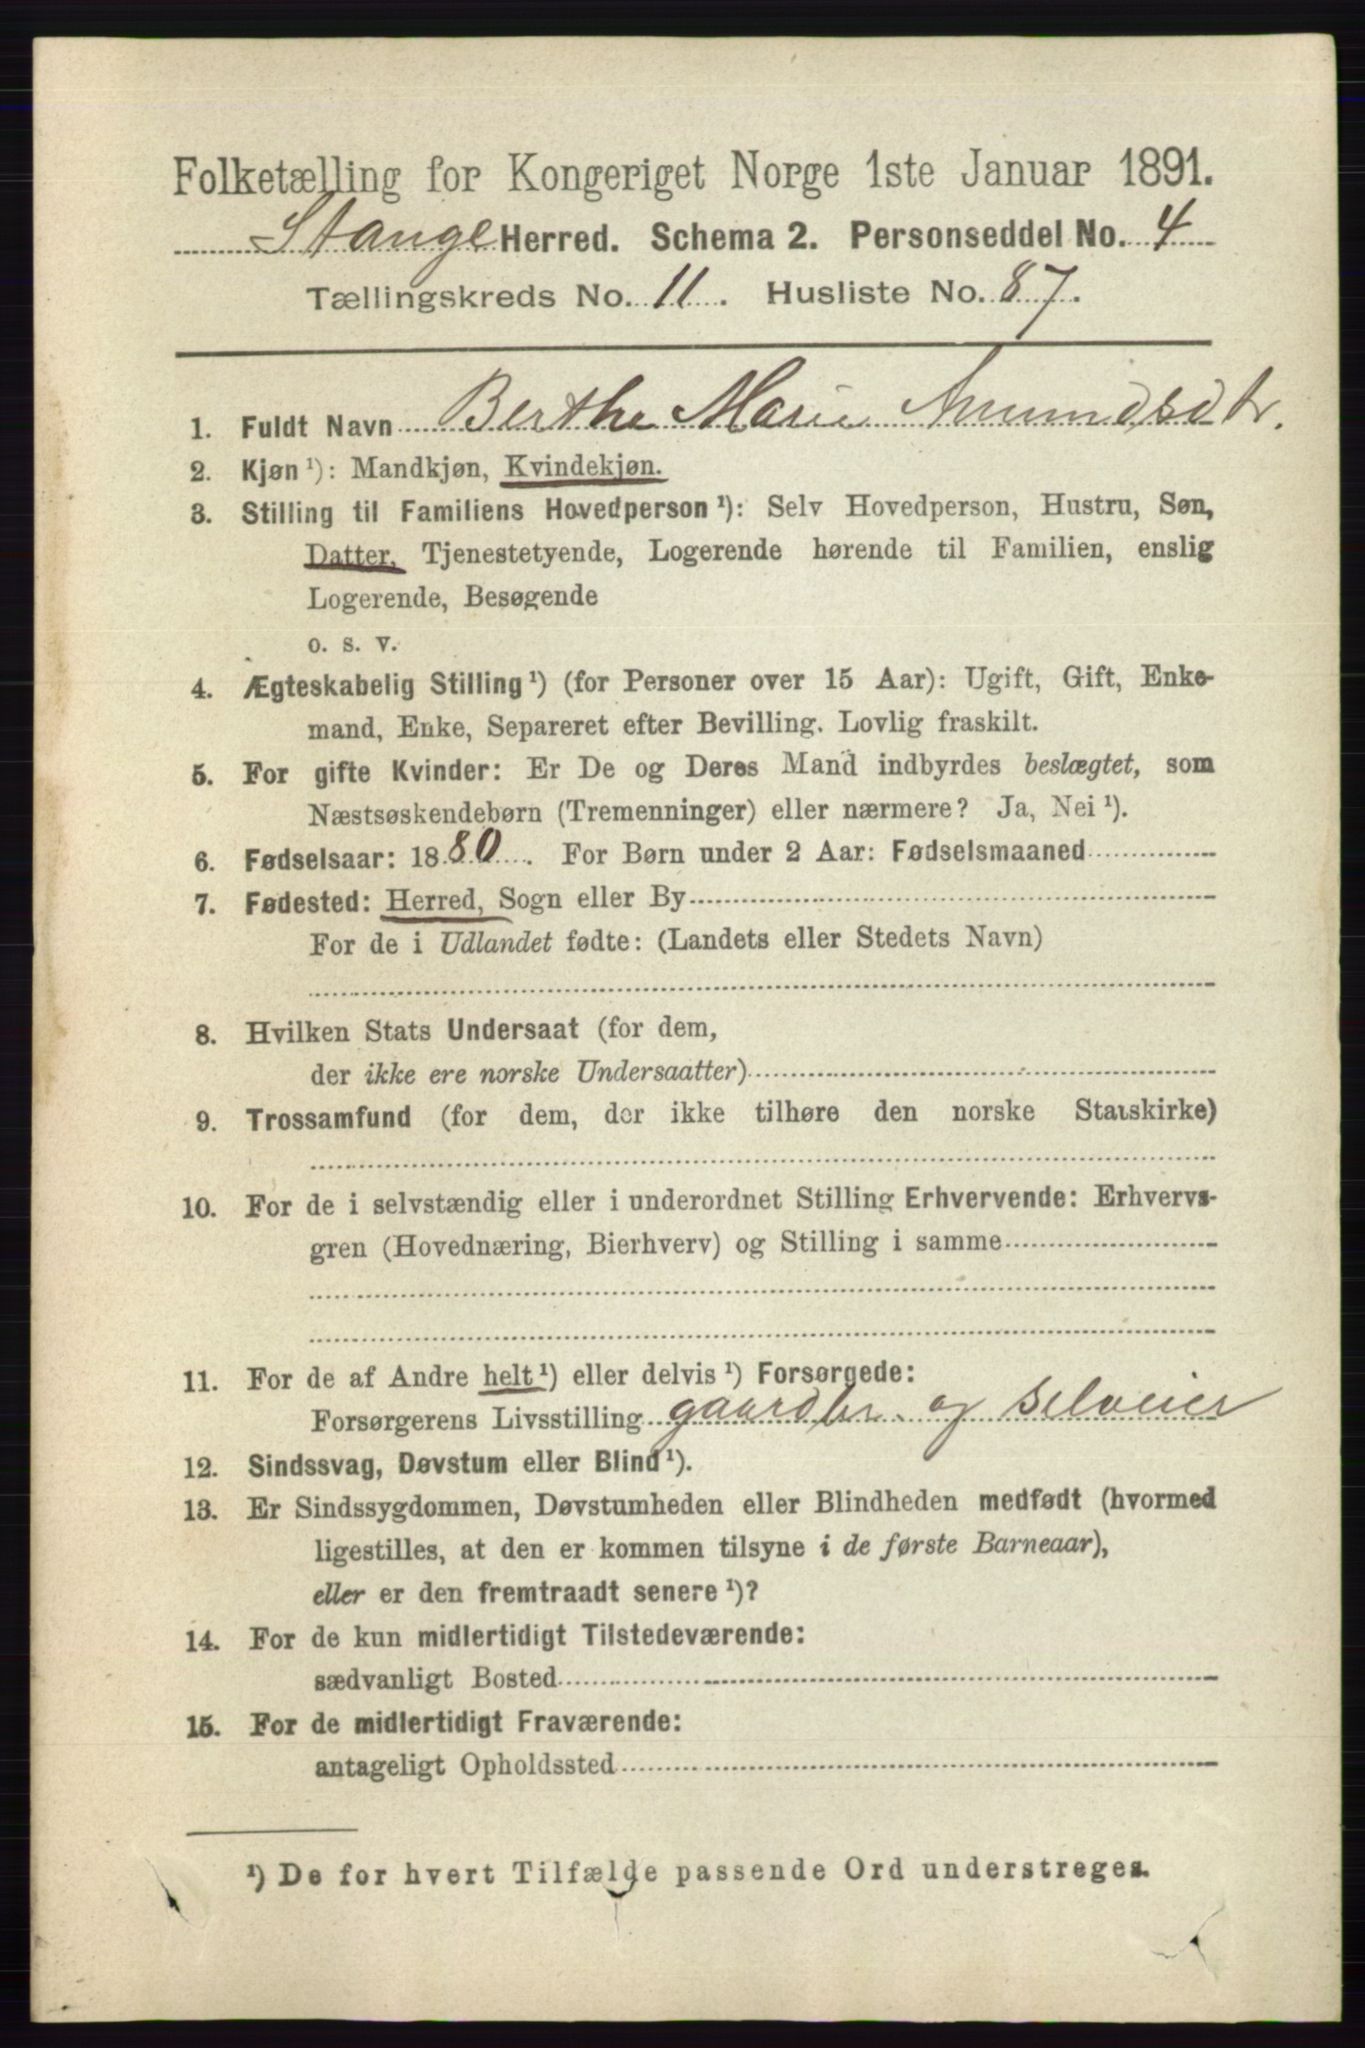 Folketælling for Kongeriget Norge 1ste Januar 1891.
Stange Herred. Schema 2. Personseddel No. 4
Tællingskreds No. 11. Husliste No. 87.
1. Fuldt Navn Berthe Marie Amundsdtr.
2. Kjøn ¹): Mandkjøn, Kvindekjøn.
3. Stilling til Familiens Hovedperson ¹): Selv Hovedperson, Hustru, Søn,
Datter, Tjenestetyende, Logerende hørende til Familien, enslig
Logerende, Besøgende
o. s. v.
4. Ægteskabelig Stilling ¹) (for Personer over 15 Aar): Ugift, Gift, Enke-
mand, Enke, Separeret efter Bevilling. Lovlig fraskilt.
5. For gifte Kvinder: Er De og Deres Mand indbyrdes beslægtet, som
Næstsøskendebørn (Tremenninger) eller nærmere? Ja, Nei ¹).
6. Fødselsaar: 1880. For Børn under 2 Aar: Fødselsmaaned
7. Fødested: Herred, Sogn eller By
For de i Udlandet fødte: (Landets eller Stedets Navn)
8. Hvilken Stats Undersaat (for dem,
der ikke ere norske Undersaatter)
9. Trossamfund (for dem, der ikke tilhøre den norske Statskirke)
10. For de i selvstændig eller i underordnet Stilling Erhvervende: Erhvervs-
gren (Hovednæring, Bierhverv) og Stilling i samme
11. For de af Andre helt ¹) eller delvis ¹) Forsørgede:
Forsørgerens Livsstilling gaardbr. og selveier
12. Sindssvag, Døvstum eller Blind ¹).
13. Er Sindssygdommen, Døvstumheden eller Blindheden medfødt (hvormed
ligestilles, at den er kommen tilsyne i de første Barneaar),
eller er den fremtraadt senere ¹)?
14. For de kun midlertidigt Tilstedeværende:
sædvanligt Bosted
15. For de midlertidigt Fraværende:
antageligt Opholdssted
¹) De for hvert Tilfælde passende Ord understreges.